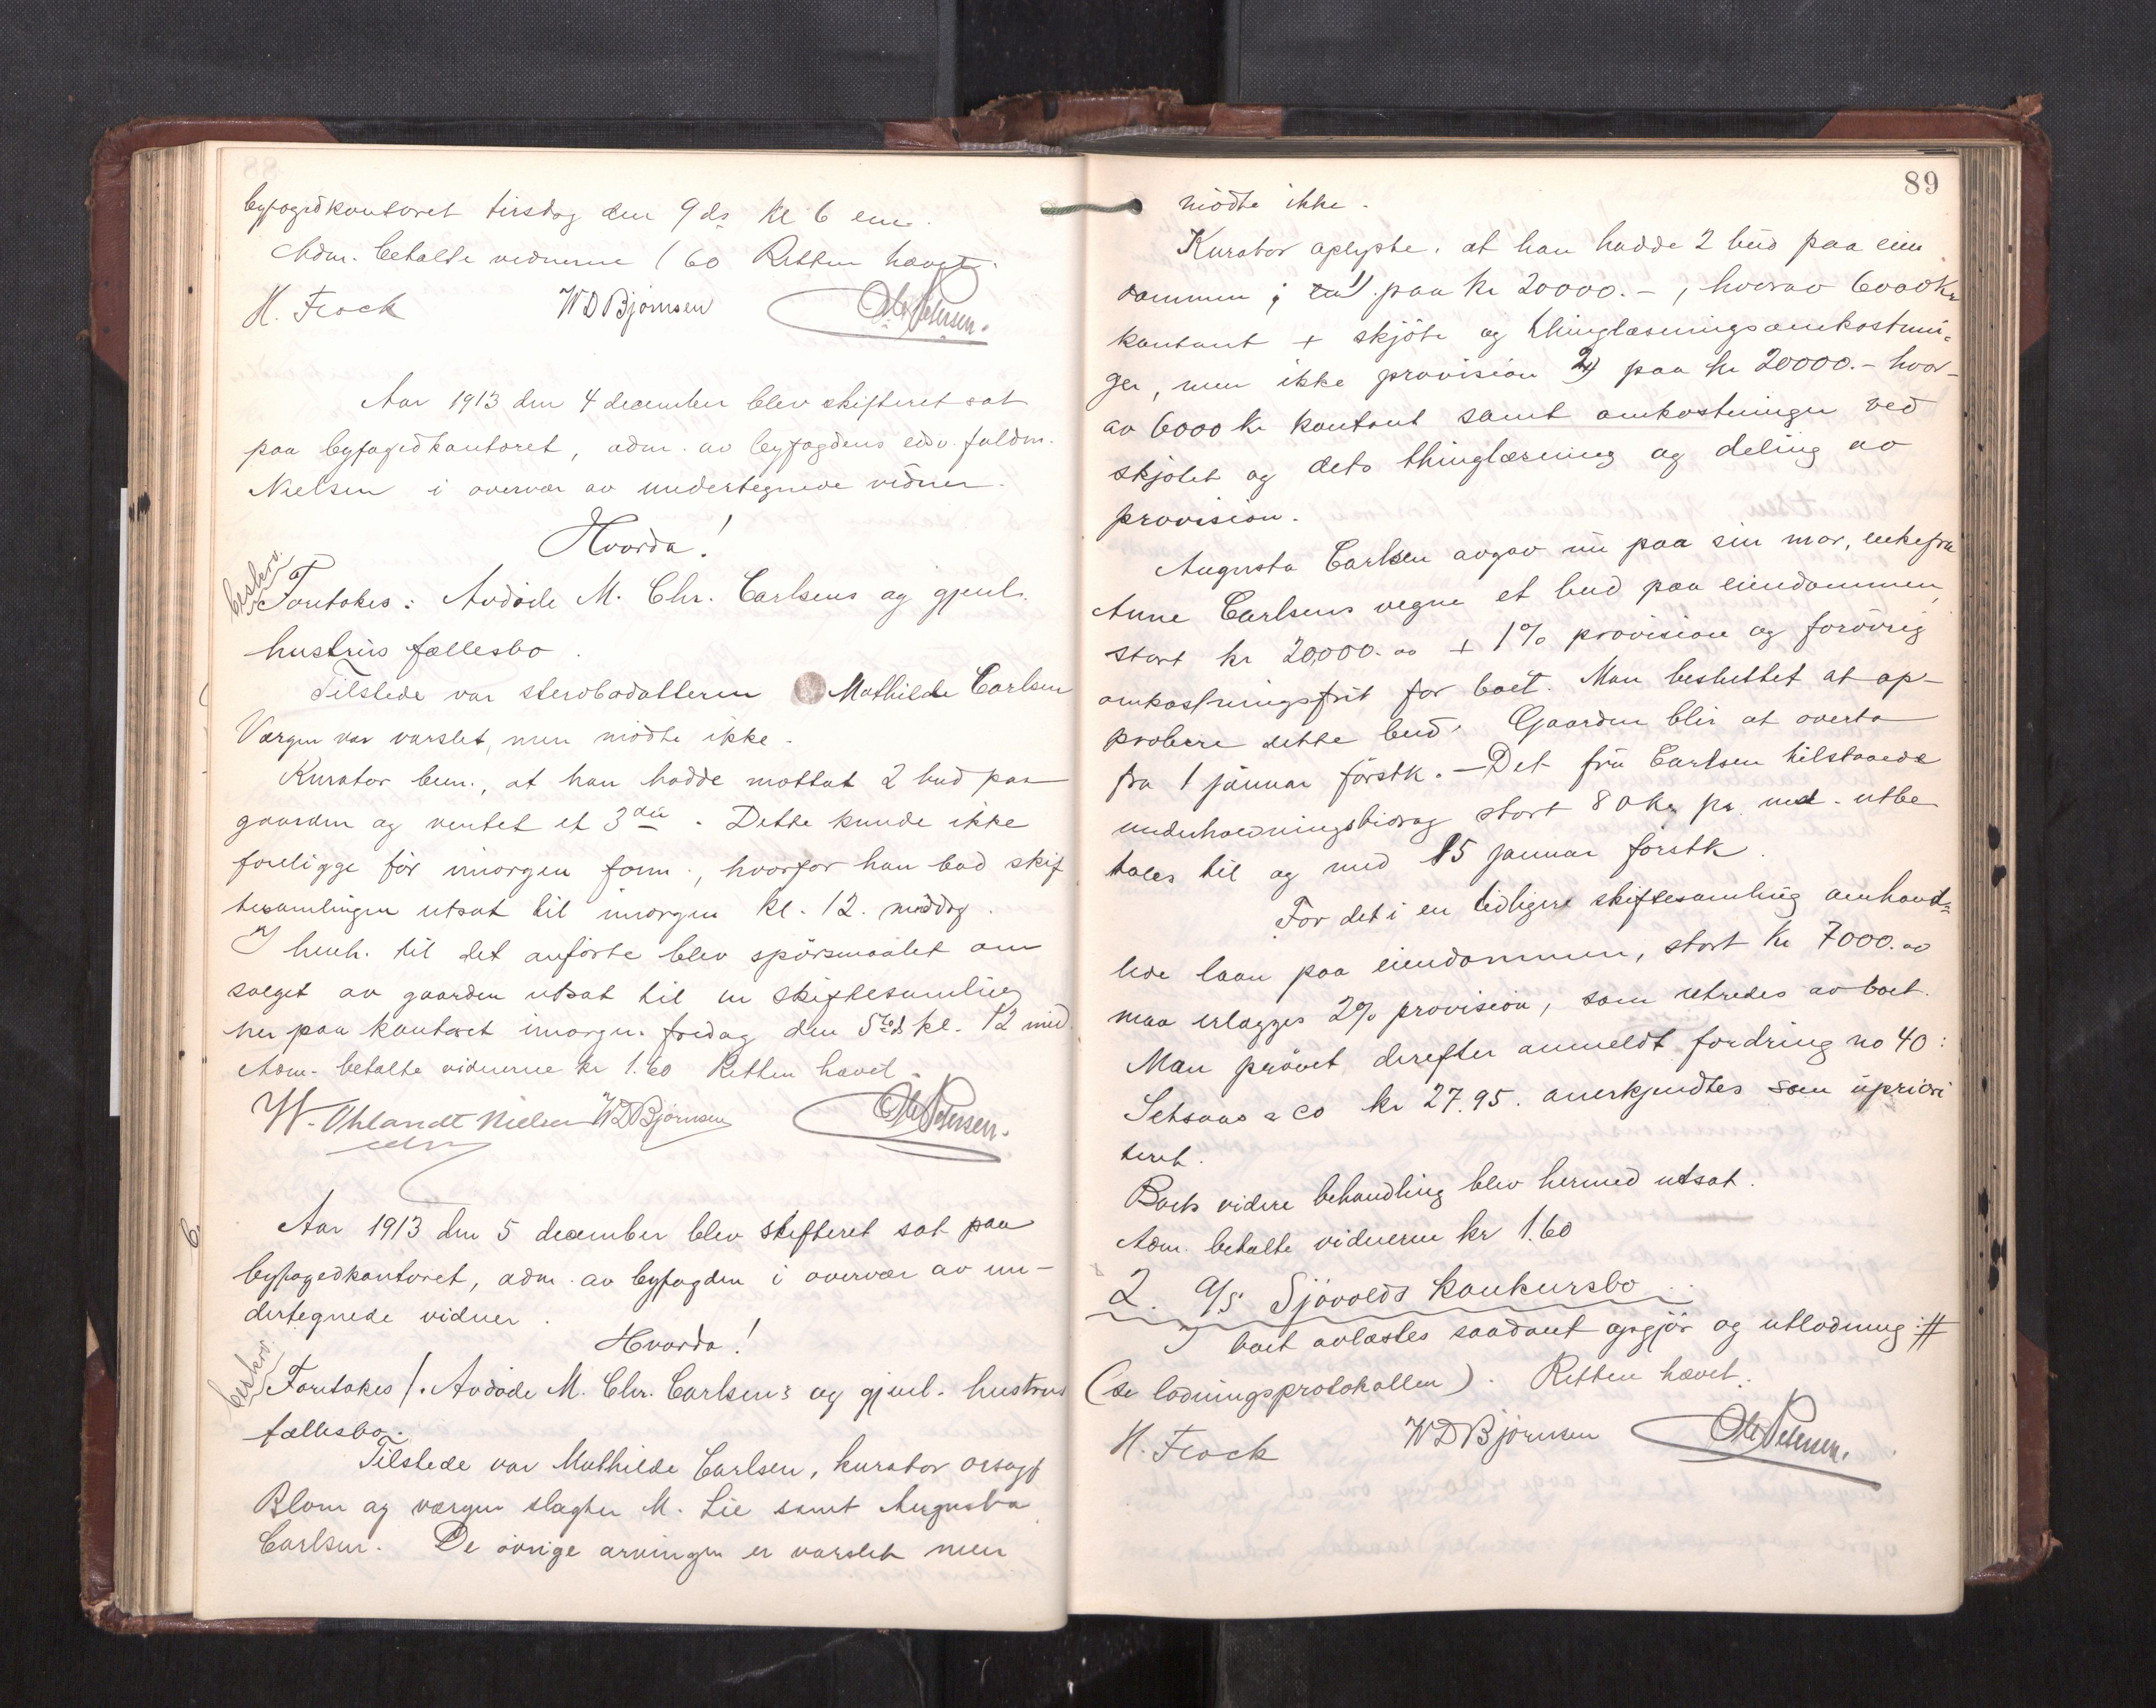 byfogedkontoret tirsdag den 9 ds kl 6 em.
Adm. betalte vidnerne 1 60 Retten hævet.
H. Frock WDBjørnsen Ole Petersen.
Aar 1913 den 4 december blev skifteret sat
paa byfogedkontoret, adm. av byfogdens edsv. fuldm.
Nielsen i overvær av undertegnede vidner.
Hvorda!
beskrev.
Foretokes: Avdøde M. Chr. Carlsens og gjenl.
hustrus fællesbo.
Tilstede var stervbodatteren Mathilde Carlsen
Værgen var varslet, men mødte ikke.
Kurator bem., at han hadde mottat 2 bud paa
gaarden og ventet et 3die. Dette kunde ikke
foreligge før imorgen form., hvorfor han bad skif
tesamlingen utsat til imorgen kl. 12. middag.
I henh. til det anførte blev spørsmaalet om
salget av gaarden utsat til en skiftesamling
her paa kontoret imorgen fredag den 5te ds kl. 12 mid.
Adm. betalte vidnerne kr 1.60 Retten hævet.
W. Uhlandt Nielsen WDBjørnsen Ole Petersen.
edsv
Aar 1913 den 5 december blev skifteret sat paa
byfogedkontoret, adm. av byfogden i overvær av un-
dertegnede vidner.
Hvorda!
beskrev.
Foretokes 1. Avdøde M. Chr. Carlsens og gjenl. hustrus
fællesbo.
Tilstede var Mathilde Carlsen, kurator orsagf
Blom og værgen slagter M. Lie samt Augusta
Carlsen. De øvrige arvinger er varslet men
89
mødte ikke.
Kurator oplyste, at han hadde 2 bud paa eien
dommen; 1) paa kr 20000.-, hvorav 6000kr
kontant + skjøte og thinglæsningsomkostnin-
ger, men ikke provision 2) paa kr 20000.- hvor-
av 6000 kr kontant samt omkostninger ved
skjøtet og dets thinglæsning og deling av
provision.
Augusta Carlsen avgav nu paa sin mor, enkefru
Anne Carlsens vegne et bud paa eiendommen,
stort kr 20,000.oo + 1% provision og forøvrig
omkostningsfrit for boet. Man besluttet at ap-
probere dette bud. Gaarden blir at overta
fra 1 januar førstk. - Det fru Carlsen tilstaaede
underholdningsbidrag stort 80 kr pr. md. utbe
tales til og med 15 januar førstk.
For det i en tidligere skiftesamling omhand-
lede laan paa eiendommen, stort kr 7000.oo
maa erlægges 2% provision, som utredes av boet.
Man prøvet derefter anmeldt fordring no 40:
Setsaas & Co kr 27.95. anerkjendtes som upriori
teret.
Boets videre behandling blev hermed utsat.
Adm. betalte vidnerne kr 1.60
2. A/S Sjøvolds konkursbo
I boet avlæstes saadant opgjør og utlodning: #
(se lodningsprotokollen). Retten hævet.
H. Frock WDBjørnsen Ole Petersen.